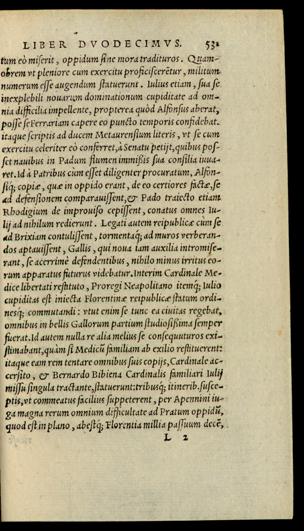 LIBER DVODECIMVS. 531
tum eò miserit, oppidum sine mora tradituros. Quam-
obrem vt pleniore cum exercitu proficisceretur, militum
numerum esse augendum statuerunt. Iulius etiam, sua se
inexplebili nouarum dominationum cupiditate ad om-
nia difficilia impellente, propterea quòd Alfonsus aberat,
posse se Ferrariam capere eo puncto temporis confidebat.
itaque scriptis ad ducem Metaurensium literis, vt se cum
exercitu celeriter eò conferret, à Senatu petijt, quibus pos-
set nauibus in Padum flumen immissis sua consilia iuua-
ret. Id à Patribus cùm esset diligenter procuratum, Alfon-
siq́; copiæ, quæ in oppido erant, de eo certiores factæ, se
ad defensionem comparauissent, & Pado traiecto etiam
Rhodigium de improuiso cepissent, conatus omnes Iu-
lij ad nihilum redierunt. Legati autem reipublicæ cum se
ad Brixiam contulissent, tormentaq́; ad muros verberan-
dos aptauissent, Gallis, qui noua tam auxilia intromise-
rant, se acerrimè defendentibus, nihilo minus irritus eo-
rum apparatus futurus videbatur. Interim Cardinale Me-
dice libertati restituto, Proregi Neapolitano itemq́; Iulio
cupiditas est iniecta Florentinæ reipublicæ statum ordi-
nesq́; commutandi: vtut enim se tunc ea ciuitas regebat,
omnibus in bellis Gallorum partium studiosissima semper
fuerat. Id autem nulla re alia melius se consequuturos exi-
stimabant, quàm si Medicū familiam ab exilio restituerent:
itaque eam rem tentare omnibus suis copijs, Cardinale ac-
cersito, & Bernardo Bibiena Cardinalis familiari Iulij
missu singula tractante, statuerunt: tribusq́; itinerib. susce-
ptis, vt commeatus facilius suppeterent, per Apennini iu-
ga magna rerum omnium difficultate ad Pratum oppidū,
quod est in plano, abestq́; Florentia millia passuum decē,
L 2